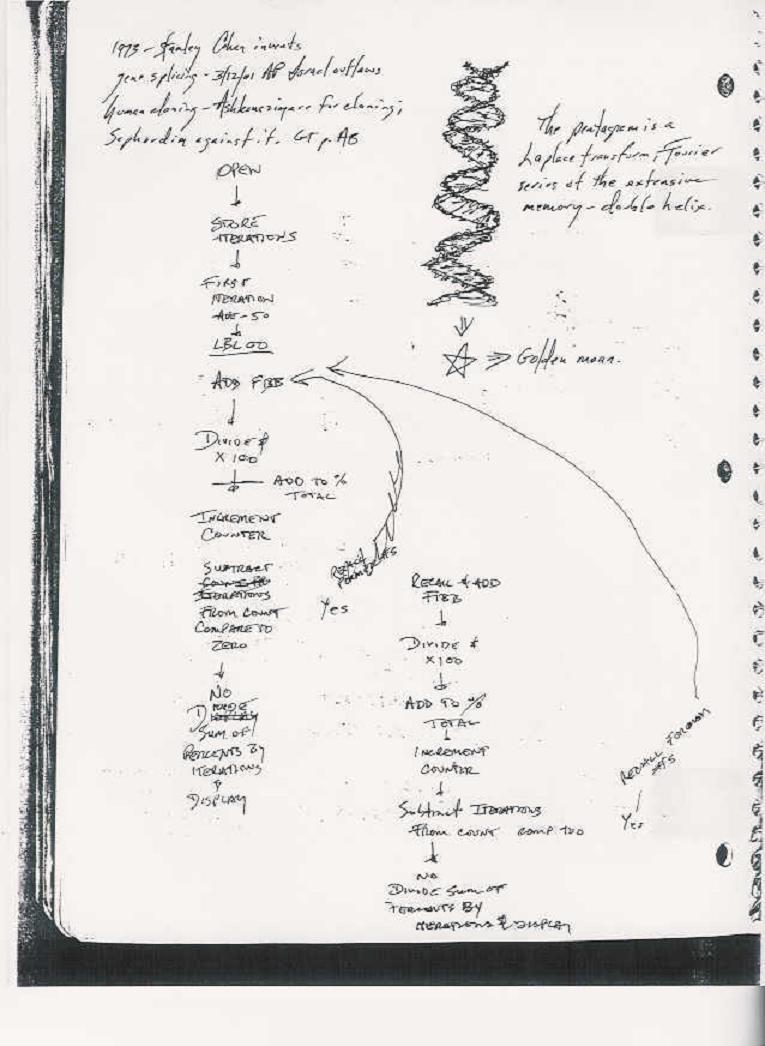 1973 - Stanley Cohen invents
gene splicing - 3/12/01 AP Israel outlaws
human cloning - Ashkenazim are for cloning;
Sephardim against it. GT p. A8
The pentagram is a
Laplace transform, Fourier
series of the extensive
memory - double helix.
⇒ Golden mean.
OPEN
STORE
ITERATIONS
FIRST
ITERATION
50
LBL 00
ADD FIBB
DIVIDE &
X 100
ADD TO %
TOTAL
INCREMENT
COUNTER
SUBTRACT
ITERATIONS
FROM COUNT
COMPARE TO
ZERO
Yes
NO
SUM OF
PERCENTS BY
ITERATIONS
&
DISPLAY
RECALL & ADD
FIBB
DIVIDE &
X 100
ADD TO %
TOTAL
INCREMENT
COUNTER
Subtract ITERATIONS
FROM COUNT COMP TO 0
NO
DIVIDE SUM OF
BY
ITERATIONS & DISPLAY
RECALL
Yes